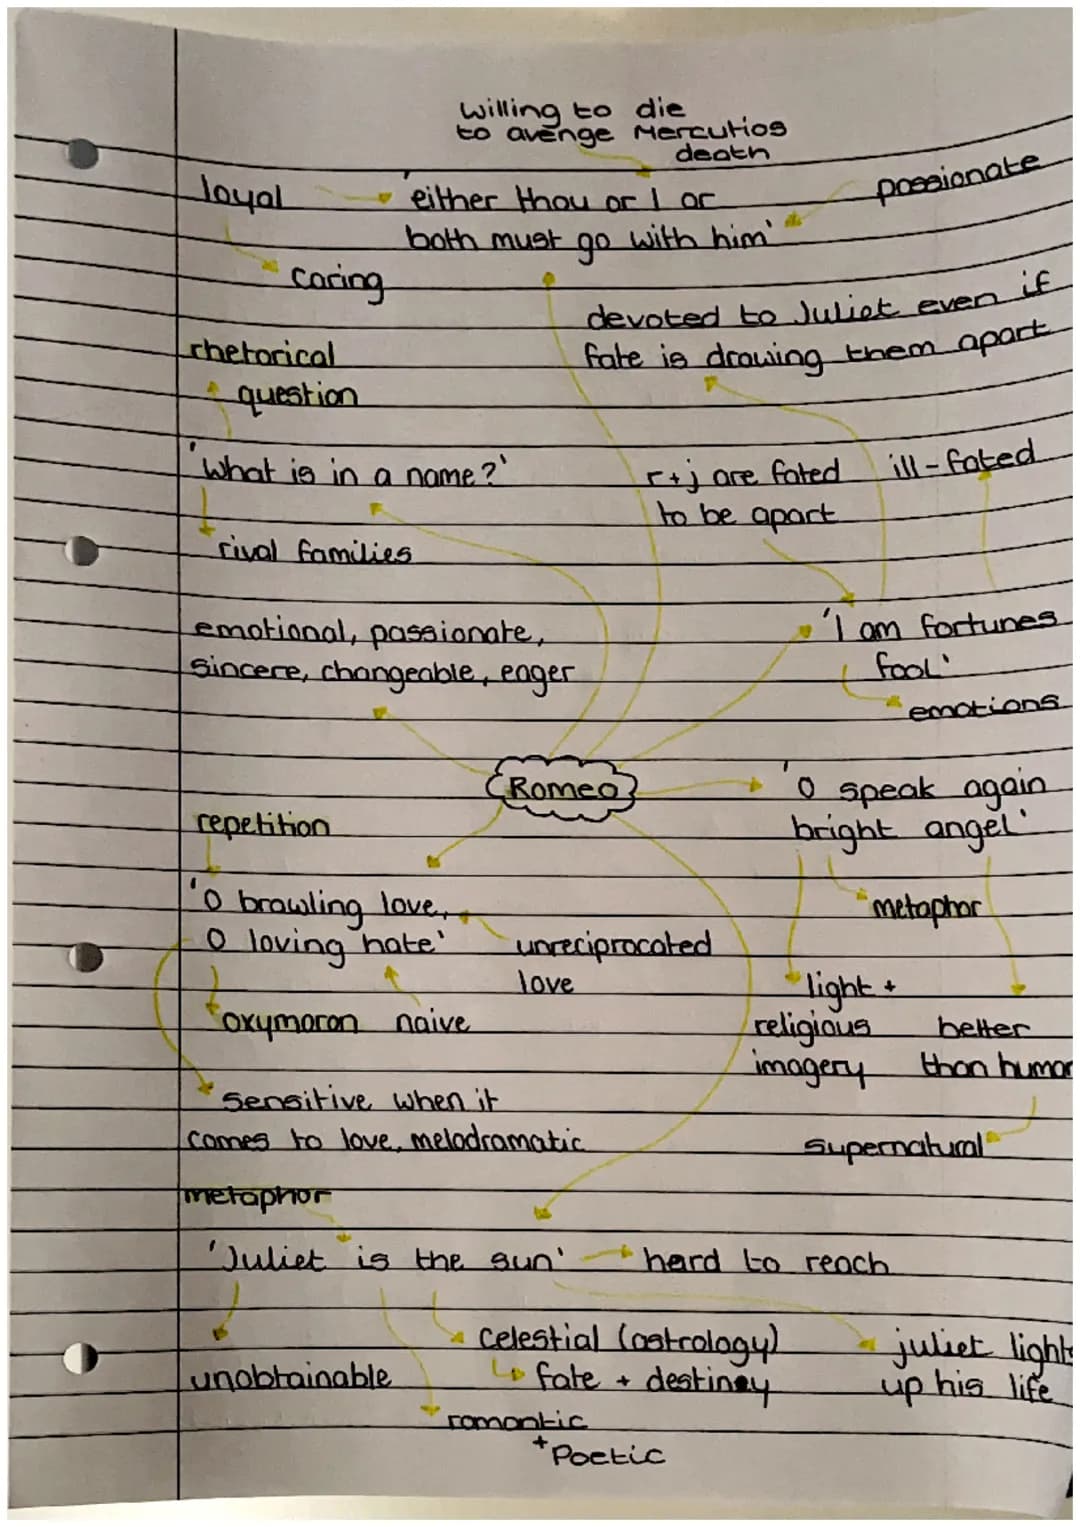 willing to die
to avenge Mercutios
death
loyal
'either thou or I or
both must go with him'
passionate
caring
devoted to Juliet even if
fate is drawing them apart
rhetorical
question
'What is in a name?'
r+j are fated
to be apart
ill-fated
rival families
emotional, passionate,
sincere, changeable, eager
'I am fortunes
fool'
emotions
Romeo
'O speak again
bright angel'
repetition
metaphor
'O brawling love,
O loving hate'
unreciprocated
love
oxymoron
naive
light +
religious
imagery
better
than human
supernatural
sensitive when it
comes to love, melodramatic
metaphor
'Juliet is the sun'
hard to reach
unobtainable
celestial (astrology)
fate + destiney
juliet lights
up his life
romantic
+ Poetic